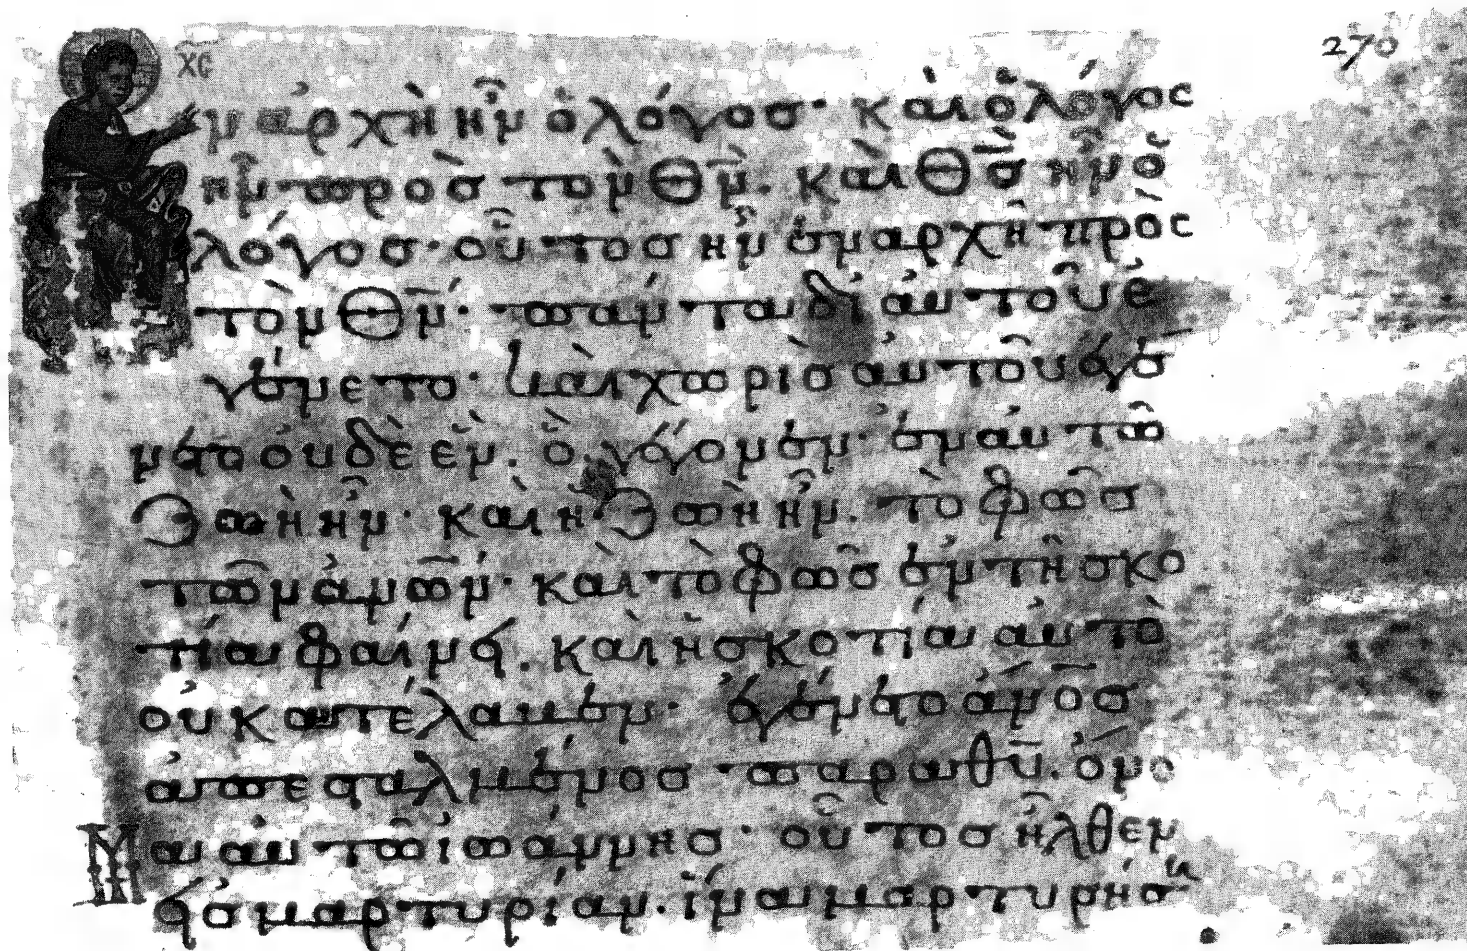 270
χ̅ς̅
ν ἀρχῆ ἦν ὁ λόγοσ· καὶ ὁ λόγος
ἦν πρὸσ τὸν θ̅ν̅. καὶ θ̅σ̅ ἦν ὁ
λόγοσ· οὗτοσ ἦν ἐν ἀρχῆ πρὸς
τὸν θ̅ν̅· πάντα δι' αὐτοῦ ἐ
γένετο· καὶ χωρὶσ αὐτοῦ ἐγέ
νετο οὐδὲ ἕν. ὃ γέγονεν· ἐν αὐτῶ
ζωὴ ἦν· καὶ ἡ ζωὴ ἦν. τὸ φῶσ
τῶν ἀν̅ω̅ν̅· καὶ τὸ φῶσ ἐν τῆ σκο
τία φαίνει. καὶ ἡ σκοτία αὐτὸ
οὐ κατέλαβεν· ἐγένετο ἀν̅ο̅σ̅
ἀπεσταλμένοσ παρὰ θ̅υ̅. ὄνο
μα αὐτῶ ἰωάννησ· οὗτοσ ἦλθεν
εἰσ μαρτυρίαν· ἵνα μαρτυρήση